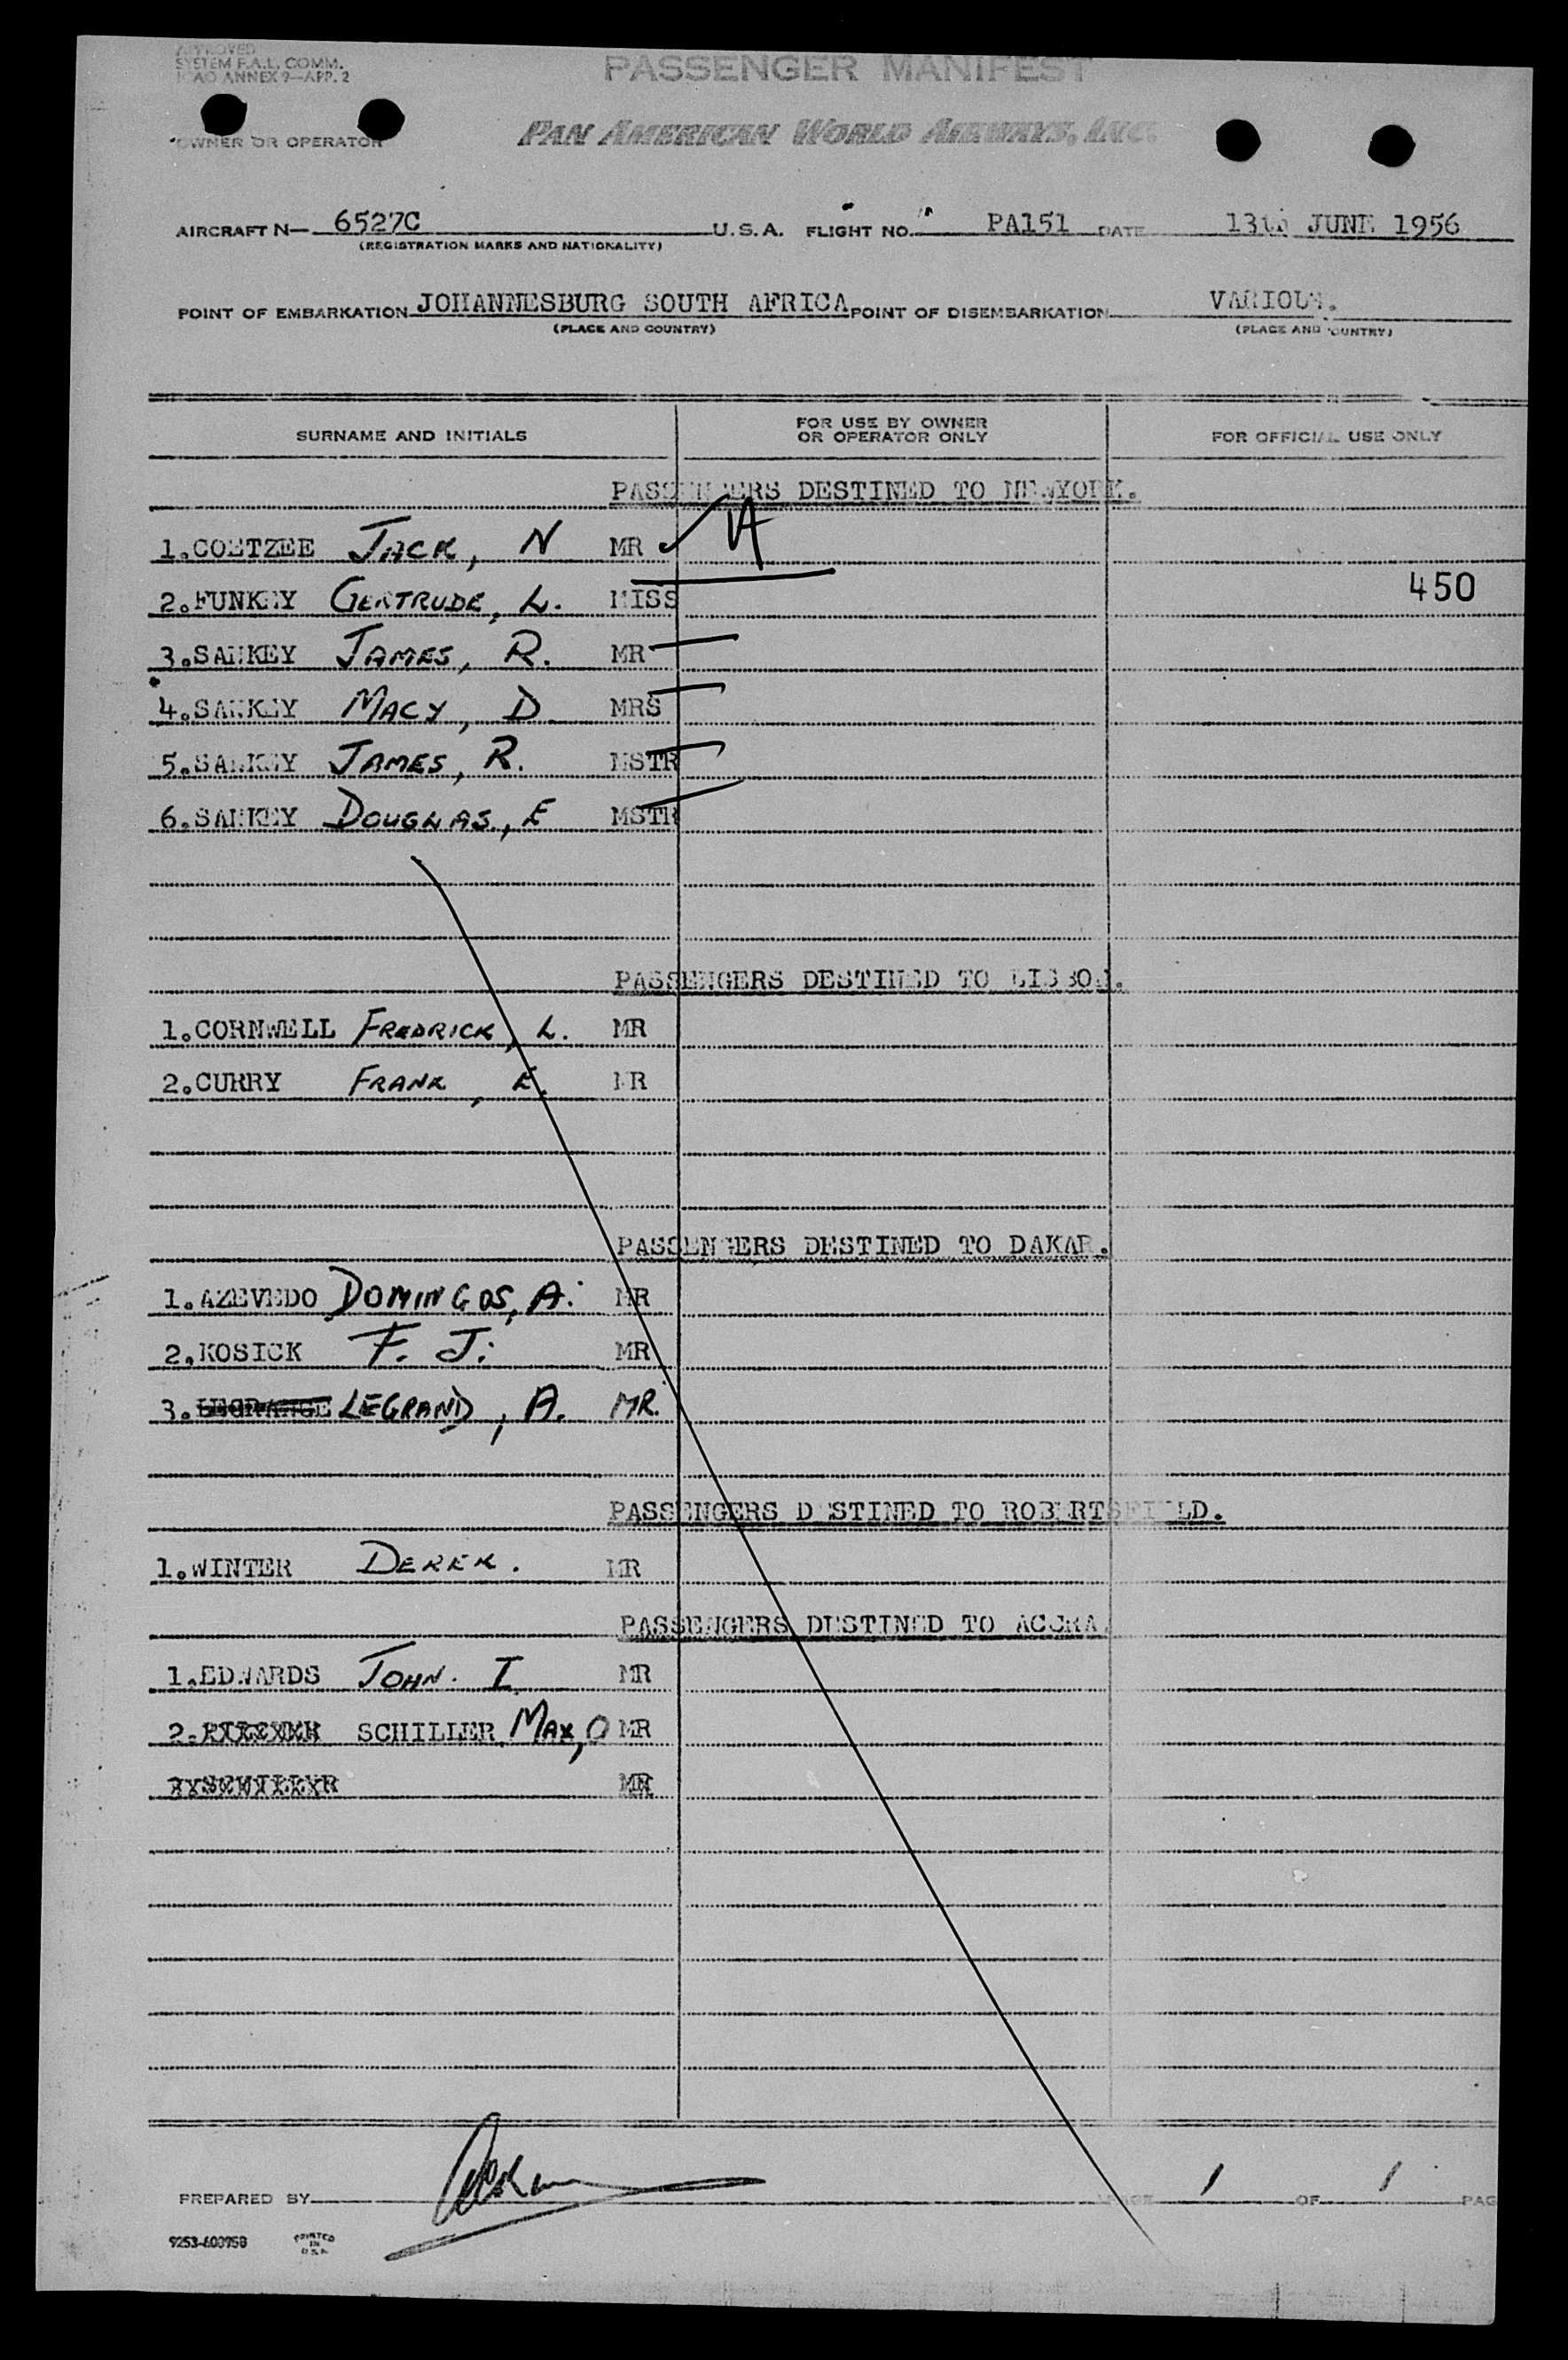 APPROVED
SYSTEM F.A.L. COMM.
ICAO ANNEX 9—APP. 2
PASSENGER MANIFEST
OWNER OR OPERATOR
PAN AMERICAN WORLD AIRWAYS, INC.
AIRCRAFT N— 6527C U.S.A. FLIGHT NO. PA151 DATE 13th JUNE 1956
(REGISTRATION MARKS AND NATIONALITY)
POINT OF EMBARKATION JOHANNESBURG SOUTH AFRICA POINT OF DISEMBARKATION VARIOUS.
(PLACE AND COUNTRY) (PLACE AND COUNTRY)
SURNAME AND INITIALS FOR USE BY OWNER OR OPERATOR ONLY FOR OFFICIAL USE ONLY
PASSENGERS DESTINED TO NEWYORK.
1.COETZEE JACK, N MR
2.FUNKEY GERTRUDE, L. MISS 450
3.SANKEY JAMES, R. MR
4.SANKEY MACY, D MRS
5.SANKEY JAMES, R. MSTR
6.SANKEY DOUGLAS, E MSTR
PASSENGERS DESTINED TO LISBON.
1.CORNWELL FREDRICK, L. MR
2.CURRY FRANK, E. MR
PASSENGERS DESTINED TO DAKAR.
1.AZEVEDO DOMINGOS, A. MR
2.KOSICK F. J. MR
3.LEGRANGE LEGRAND, A. MR.
PASSENGERS DESTINED TO ROBERTSFIELD.
1.WINTER DEREK. MR
PASSENGERS DESTINED TO ACCRA.
1.EDWARDS JOHN. I. MR
2. SCHILLER MAX, O MR
MR
PREPARED BY PAGE 1 OF 1 PAG
9253-600958 PRINTED IN U.S.A.